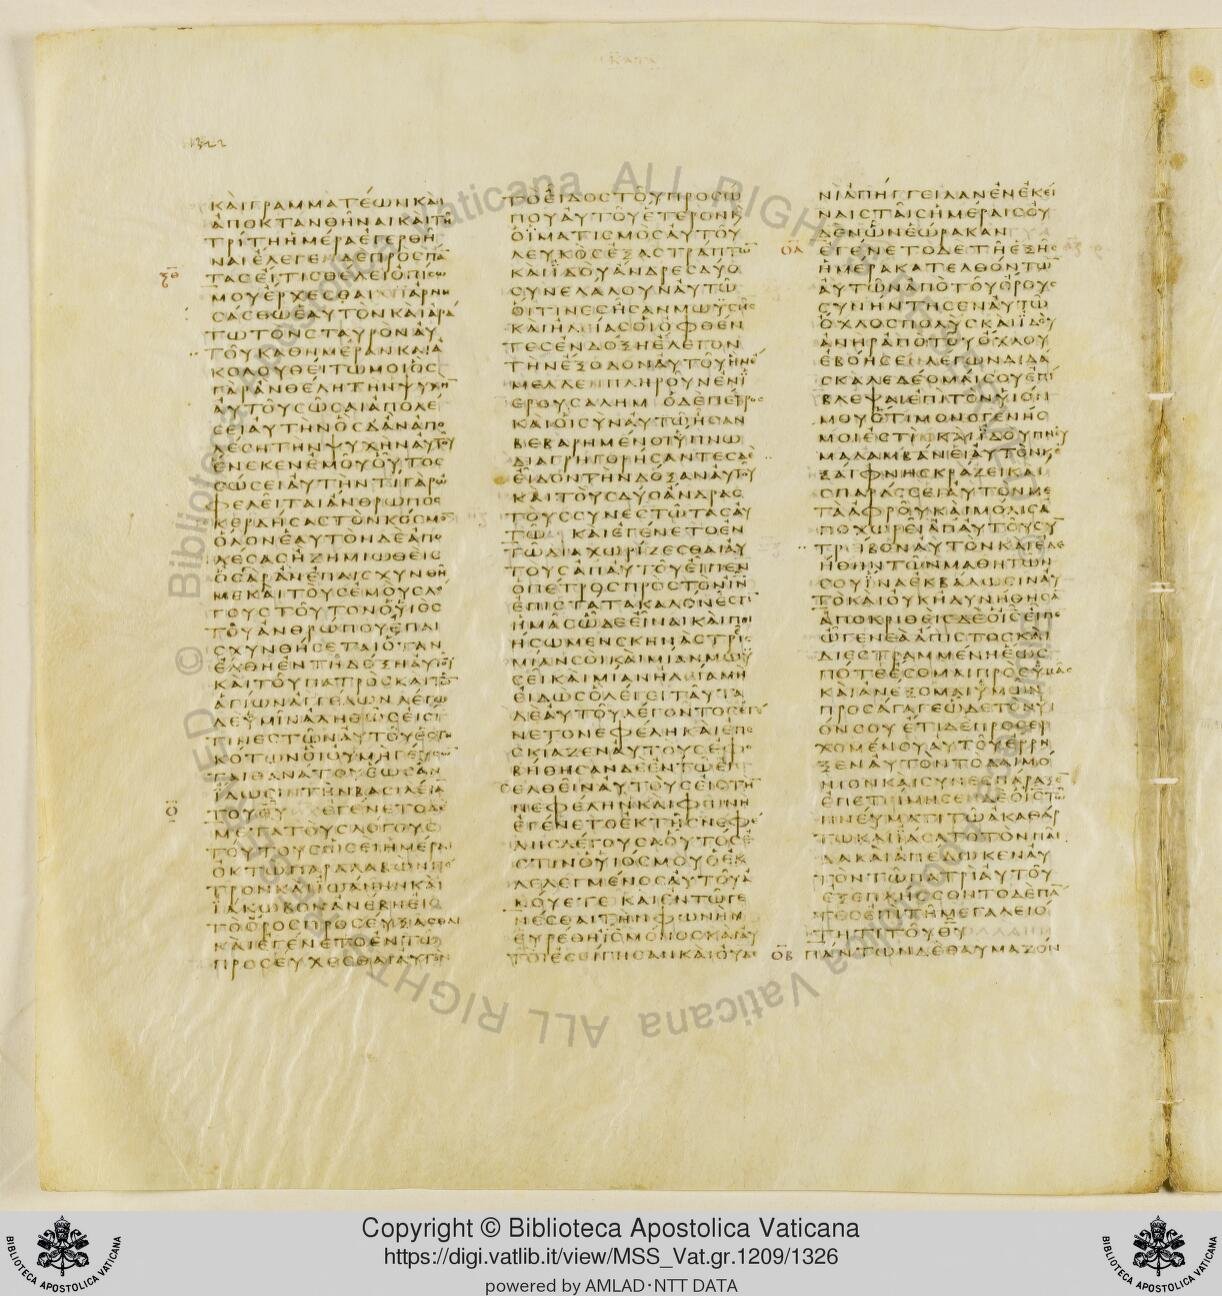 ΚΑΤΑ
ΚΑΙΓΡΑΜΜΑΤΕΩΝΚΑΙ
ΑΠΟΚΤΑΝΘΗΝΑΙΚΑΙΤΗ
ΤΡΙΤΗΗΜΕΡΑΕΓΕΡΘΗ
ΝΑΙΕΛΕΓΕΔΕΠΡΟΣΠΑ
ΤΑΣΕΙΤΙΣΘΕΛΕΙΟΠΙΣΩ
ΜΟΥΕΡΧΕΣΘΑΙΑΡΝΗ
ΣΑΣΘΩΕΑΥΤΟΝΚΑΙΑΡΑ
ΤΩΤΟΝΣΤΑΥΡΟΝΑΥ
ΤΟΥΚΑΘΗΜΕΡΑΝΚΑΙΑ
ΚΟΛΟΥΘΕΙΤΩΜΟΙΟΣ
ΓΑΡΑΝΘΕΛΗΤΗΝΨΥΧΗ
ΑΥΤΟΥΣΩΣΑΙΑΠΟΛΕ
ΣΕΙΑΥΤΗΝΟΣΔΑΝΑΠΟ
ΛΕΣΗΤΗΝΨΥΧΗΝΑΥΤΟΥ
ΕΝΕΚΕΝΕΜΟΥΟΥΤΟΣ
ΣΩΣΕΙΑΥΤΗΝΤΙΓΑΡΩ
ΦΕΛΕΙΤΑΙΑΝΘΡΩΠΟΣ
ΚΕΡΔΗΣΑΣΤΟΝΚΟΣΜΟ
ΟΛΟΝΕΑΥΤΟΝΔΕΑΠΟ
ΛΕΣΑΣΗΖΗΜΙΩΘΕΙΣ
ΟΣΓΑΡΑΝΕΠΑΙΣΧΥΝΘΗ
ΜΕΚΑΙΤΟΥΣΕΜΟΥΣΛΟ
ΓΟΥΣΤΟΥΤΟΝΟΥΙΟΣ
ΤΟΥΑΝΘΡΩΠΟΥΕΠΑΙ
ΣΧΥΝΘΗΣΕΤΑΙΟΤΑΝ
ΕΛΘΗΕΝΤΗΔΟΞΗΑΥΤΟΥ
ΚΑΙΤΟΥΠΑΤΡΟΣΚΑΙΤΩΝ
ΑΓΙΩΝΑΓΓΕΛΩΝΛΕΓΩ
ΔΕΥΜΙΝΑΛΗΘΩΣΕΙΣΙ
ΤΙΝΕΣΤΩΝΑΥΤΟΥΕΣΤΗ
ΚΟΤΩΝΟΙΟΥΜΗΓΕΥΣΩ
ΤΑΙΘΑΝΑΤΟΥΕΩΣΑΝ
ΙΔΩΣΙΝΤΗΝΒΑΣΙΛΕΙΑ
ΤΟΥΘΥ ΕΓΕΝΕΤΟΔΕ
ΜΕΤΑΤΟΥΣΛΟΓΟΥΣ
ΤΟΥΤΟΥΣΩΣΕΙΗΜΕΡΑΙ
ΟΚΤΩΠΑΡΑΛΑΒΩΝΠΕ
ΤΡΟΝΚΑΙΙΩΑΝΗΝΚΑΙ
ΙΑΚΩΒΟΝΑΝΕΒΗΕΙΣ
ΤΟΟΡΟΣΠΡΟΣΕΥΞΑΣΘΑΙ
ΚΑΙΕΓΕΝΕΤΟΕΝΤΩ
ΠΡΟΣΕΥΧΕΣΘΑΙΑΥΤΟΝ
ΤΟΕΙΔΟΣΤΟΥΠΡΟΣΩ
ΠΟΥΑΥΤΟΥΕΤΕΡΟΝΚ
ΟΙΜΑΤΙΣΜΟΣΑΥΤΟΥ
ΛΕΥΚΟΣΕΞΑΣΤΡΑΠΤΩ
ΚΑΙΙΔΟΥΑΝΔΡΕΣΔΥΟ
ΣΥΝΕΛΑΛΟΥΝΑΥΤΩ
ΟΙΤΙΝΕΣΗΣΑΝΜΩΥΣΗΣ
ΚΑΙΗΛΕΙΑΣΟΙΟΦΘΕΝ
ΤΕΣΕΝΔΟΞΗΕΛΕΓΟΝ
ΤΗΝΕΞΟΔΟΝΑΥΤΟΥΗΝΗ
ΜΕΛΛΕΝΠΛΗΡΟΥΝΕΝΙ
ΕΡΟΥΣΑΛΗΜ ΟΔΕΠΕΤΡΟΣ
ΚΑΙΟΙΣΥΝΑΥΤΩΗΣΑΝ
ΒΕΒΑΡΗΜΕΝΟΙΥΠΝΩ
ΔΙΑΓΡΗΓΟΡΗΣΑΝΤΕΣΔΕ
ΕΙΔΟΝΤΗΝΔΟΞΑΝΑΥΤΟΥ
ΚΑΙΤΟΥΣΔΥΟΑΝΔΡΑΣ
ΤΟΥΣΣΥΝΕΣΤΩΤΑΣΑΥ
ΤΩ ΚΑΙΕΓΕΝΕΤΟΕΝ
ΤΩΔΙΑΧΩΡΙΖΕΣΘΑΙΑΥ
ΤΟΥΣΑΠΑΥΤΟΥΕΙΠΕΝ
ΟΠΕΤΡΟΣΠΡΟΣΤΟΝΙΝ
ΕΠΙΣΤΑΤΑΚΑΛΟΝΕΣΤΙ
ΗΜΑΣΩΔΕΕΙΝΑΙΚΑΙΠΟΙ
ΗΣΩΜΕΝΣΚΗΝΑΣΤΡΕΙΣ
ΜΙΑΝΣΟΙΚΑΙΜΙΑΝΜΩΥ
ΣΕΙΚΑΙΜΙΑΝΗΛΕΙΑΜΗ
ΕΙΔΩΣΟΛΕΓΕΙΤΑΥΤΑ
ΔΕΑΥΤΟΥΛΕΓΟΝΤΟΣΕΓΕ
ΝΕΤΟΝΕΦΕΛΗΚΑΙΕΠΕ
ΣΚΙΑΖΕΝΑΥΤΟΥΣΕΦΟ
ΒΗΘΗΣΑΝΔΕΕΝΤΩΕΙΣ
ΕΛΘΕΙΝΑΥΤΟΥΣΕΙΣΤΗ
ΝΕΦΕΛΗΝΚΑΙΦΩΝΗ
ΕΓΕΝΕΤΟΕΚΤΗΣΝΕΦΕ
ΛΗΣΛΕΓΟΥΣΑΟΥΤΟΣΕ
ΣΤΙΝΟΥΙΟΣΜΟΥΟΕΚ
ΛΕΛΕΓΜΕΝΟΣΑΥΤΟΥΑ
ΚΟΥΕΤΕ ΚΑΙΕΝΤΩΓΕ
ΝΕΣΘΑΙΤΗΝΦΩΝΗΝ
ΕΥΡΕΘΗΙΣΜΟΝΟΣΚΑΙΑΥ
ΤΟΙΕΣΙΓΗΣΑΝΚΑΙΟΥΔΕ
ΝΙΑΠΗΓΓΕΙΛΑΝΕΝΕΚΕΙ
ΝΑΙΣΤΑΙΣΗΜΕΡΑΙΣΟΥ
ΔΕΝΩΝΕΩΡΑΚΑΝ
ΕΓΕΝΕΤΟΔΕΤΗΕΞΗΣ
ΗΜΕΡΑΚΑΤΕΛΘΟΝΤΩ
ΑΥΤΩΝΑΠΟΤΟΥΟΡΟΥΣ
ΣΥΝΗΝΤΗΣΕΝΑΥΤΩ
ΟΧΛΟΣΠΟΛΥΣΚΑΙΙΔΟΥ
ΑΝΗΡΑΠΟΤΟΥΟΧΛΟΥ
ΕΒΟΗΣΕΛΕΓΩΝΔΙΔΑ
ΣΚΑΛΕΔΕΟΜΑΙΣΟΥΕΠΙ
ΒΛΕΨΑΙΕΠΙΤΟΝΥΙΟΝ
ΜΟΥΟΤΙΜΟΝΟΓΕΝΗΣ
ΜΟΙΕΣΤΙΚΑΙΙΔΟΥΠΝΑ
ΛΑΜΒΑΝΕΙΑΥΤΟΝΚΑΙΕ
ΞΑΙΦΝΗΣΚΡΑΖΕΙΚΑΙ
ΣΠΑΡΑΣΣΕΙΑΥΤΟΝΜΕ
ΤΑΑΦΡΟΥΚΑΙΜΟΛΙΣΑ
ΠΟΧΩΡΕΙΑΠΑΥΤΟΥΣΥ
ΤΡΕΙΒΟΝΑΥΤΟΝΚΑΙΕΔΕ
ΗΘΗΝΤΩΝΜΑΘΗΤΩΝ
ΣΟΥΙΝΑΕΚΒΑΛΩΣΙΝΑΥ
ΤΟΚΑΙΟΥΚΗΔΥΝΗΘΗΣΑ
ΑΠΟΚΡΙΘΕΙΣΔΕΟΙΣΕΙΠΕ
ΩΓΕΝΕΑΑΠΙΣΤΟΣΚΑΙ
ΔΙΕΣΤΡΑΜΜΕΝΗΕΩΣ
ΠΟΤΕΕΣΟΜΑΙΠΡΟΣΥΜΑΣ
ΚΑΙΑΝΕΞΟΜΑΙΥΜΩΝ
ΠΡΟΣΑΓΑΓΕΩΔΕΤΟΝΥΙ
ΟΝΣΟΥΕΤΙΔΕΠΡΟΣΕΡ
ΧΟΜΕΝΟΥΑΥΤΟΥΕΡΡΗ
ΞΕΝΑΥΤΟΝΤΟΔΑΙΜΟ
ΝΙΟΝΚΑΙΣΥΝΕΣΠΑΡΑΞΕ
ΕΠΕΤΙΜΗΣΕΝΔΕΟΙΣΤΩ
ΠΝΕΥΜΑΤΙΤΩΑΚΑΘΑΡ
ΤΩΚΑΙΙΑΣΑΤΟΤΟΝΠΑΙ
ΔΑΚΑΙΑΠΕΔΩΚΕΝΑΥ
ΤΟΝΤΩΠΑΤΡΙΑΥΤΟΥ
ΕΞΕΠΛΗΣΣΟΝΤΟΔΕΠΑ
ΤΕΣΕΠΙΤΗΜΕΓΑΛΕΙΟ
ΤΗΤΙΤΟΥΘΥ
ΟΒ ΠΑΝΤΩΝΔΕΘΑΥΜΑΖΟΝ
ΞΘ
Ο
ΟΑ
Copyright © Biblioteca Apostolica Vaticana
https://digi.vatlib.it/view/MSS_Vat.gr.1209/1326
powered by AMLAD·NTT DATA
BIBLIOTECA APOSTOLICA VATICANA
BIBLIOTECA APOSTOLICA VATICANA